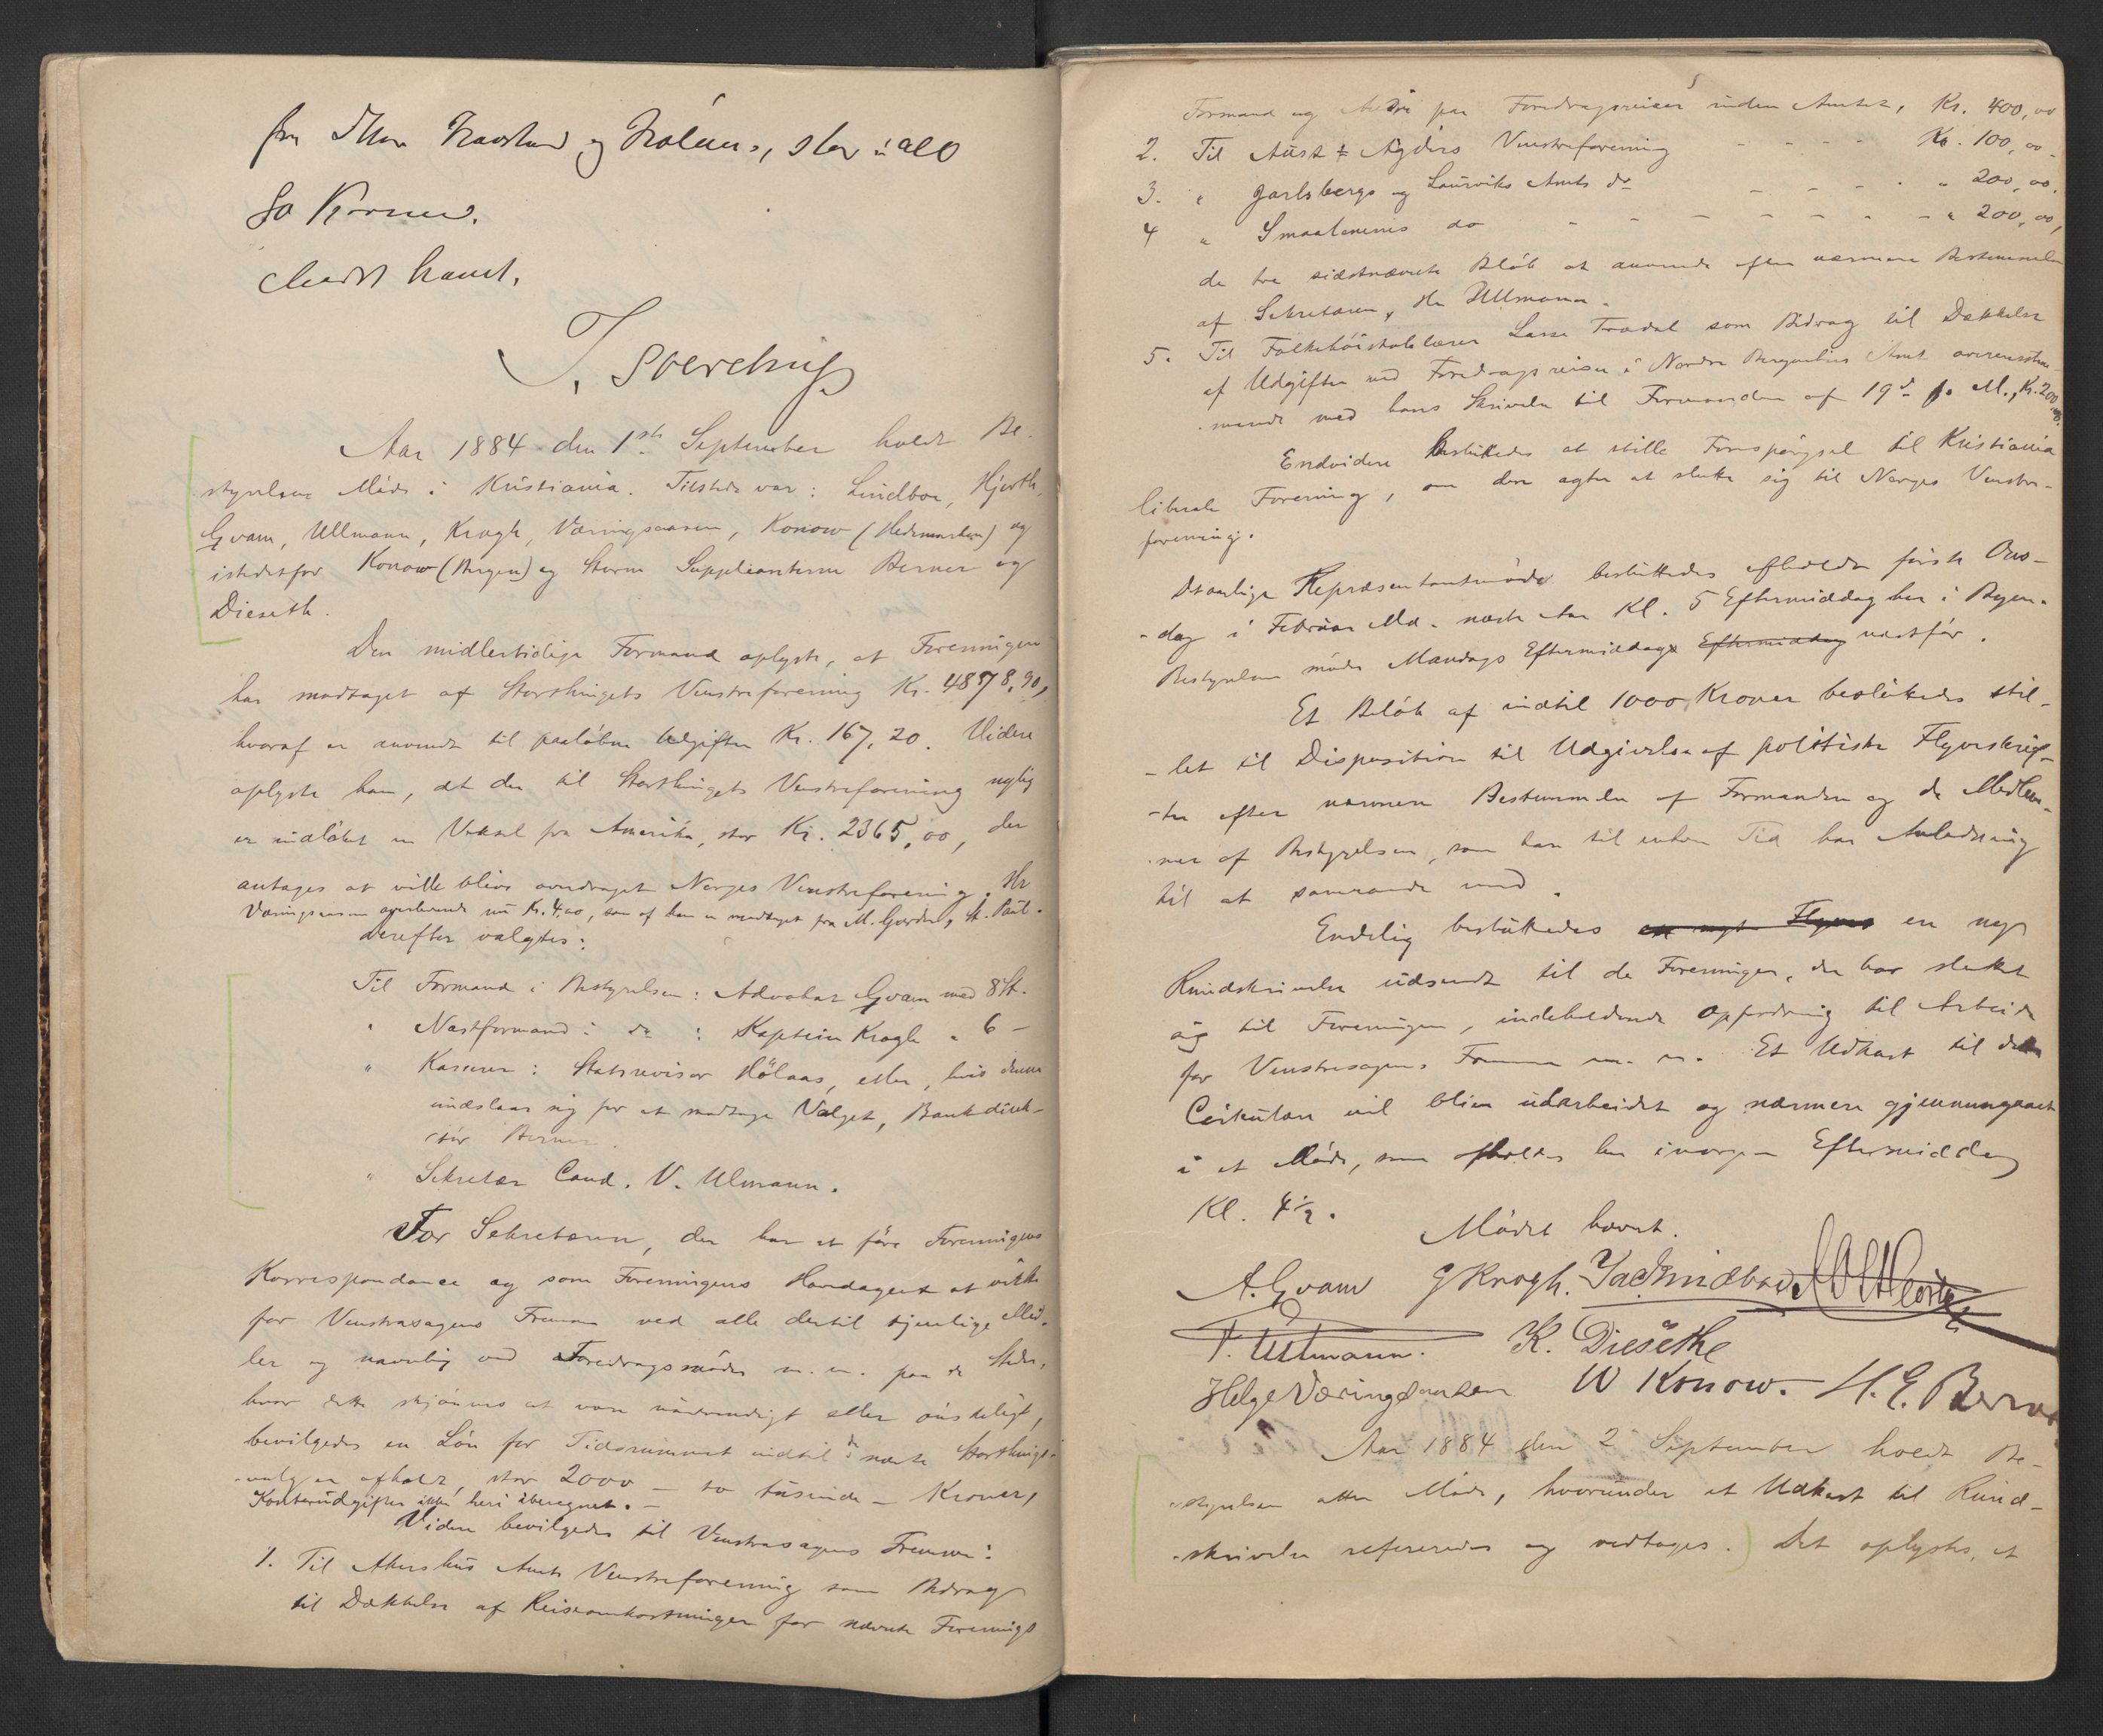 fra D'Hrr Haavstad og Holaas, stor i alt
80 Kroner.
Mødet hævet.
J. Sverdrup
Aar 1884 den 1ste September holdt Be-
styrelsen Møde i Kristiania. Tilstede var: Lindboe, Hjorth,
Qvam, Ullmann, Krogh, Væringsaasen, Konow (Hedemarken) og
istedetfor Konow (Bergen) og Storm Suppleanterne Berner og
Dieseth.
Den midlertidige Formand oplyste, at Foreningen
har modtaget af Storthingets Venstreforening Kr. 4878,90,
hvoraf er anvendt til paaløbne Udgifter Kr. 167,20. Videre
oplyste han, at der til Storthingets Venstreforening nylig
er indløbet en Vexel fra Amerika, stor Kr. 2365,00, der
antages at ville blive overdraget Norges Venstreforening. Hr
Væringsaasen overleverede nu Kr. 4,00, som af han er modtaget fra M. Gjerdr, St. Paul.
Derefter valgtes:
Til Formand i Bestyrelsen: Advokat Qvam med 8 St.
" Næstformand i do : Kaptein Krogh " 6 –
" Kasserer: Statsrevisor Hölaas, eller, hvis denne
undslaar sig for at modtage Valget, Bankdirek-
tör Berner.
" Sekretær Cand. V. Ulmann.
For Sekretæren, der har at føre Foreningens
Korrespondance og som Foreningens Hovedagent at virke
for Venstresagens Fremme ved alle dertil tjenlige Mid-
ler og navnlig ved Foredragsmøder m. m. paa de Steder,
hvor dette skjønnes at være nødvendigt eller ønskeligt,
bevilgedes en Løn for Tidsrummet indtil de næste Storthings-
valg er afholdt, stor 2000 – to tusinde – Kroner,
Kontorudgifter ikke heri iberegnet. –
Videre bevilgedes til Venstresagens Fremme:
1. Til Akershus Amts Venstreforening som Bidrag
til Dækkelse af Reiseomkostninger for nævnte Forenings
Formand og Andre paa Foredragsreiser inden Amtet, Kr. 400,00
2. Til Aust-Agders Venstreforening - - - - Kr. 100,00.
3. " Jarlsbergs og Laurviks Amts do - - - - " 200,00.
4 " Smaalenenes do - - - - - - - " 200,00,
de tre sidstnævnte Beløb at anvende efter nærmere Bestemmelse
af Sekretæren, Hr Ullmann.
5. Til Folkehøiskolelærer Lasse Trædal som Bidrag til Dækkelse
af Udgifter ved Foredragsreiser i Nordre Bergenhus Amt overensstem-
mende med hans Skrivelse til Formanden af 19d f. M., Kr. 200,00.
Endvidere besluttedes at stille Forespørgsel til Kristiania
liberale Forening, om den agter at slutte sig til Norges Venstre-
forening.
Det aarlige Repræsentantmøde besluttedes afholdt første Ons-
-dag i Februar Md. næste Aar Kl. 5 Eftermiddag her i Byen.
Bestyrelsen møder Mandags Eftermiddag Eftermiddag næstfør.
Et Beløb af indtil 1000 Kroner besluttedes stil-
-let til Disposition til Udgivelse af politiske Flyveskrif-
-ter efter nærmere Bestemmelse af Formanden og de Medlem-
-mer af Bestyrelsen, som han til enhver Tid har Anledning
til at samraade med.
Endelig besluttedes en nyt Flyves en ny
Rundskrivelse udsendt til de Foreninger, der har sluttet
sig til Foreningen, indeholdende Opfordring til Arbeide
for Venstresagens Fremme m. m. Et Udkast til dette
Cirkulære vil blive udarbeidet og nærmere gjennemgaaet
i et Møde, som afholdes her imorgen Eftermiddag
Kl. 4½.
Mødet hævet.
A. Qvam G Krogh. Jac Lindboe
V. Ullmann. K. Dieseth
Helge Væringsaasen W Konow. H. E. Berner
Aar 1884 den 2 September holdt Be-
-styrelsen atter Møde, hvorunder et Udkast til Rund-
-skrivelse refereredes og vedtoges. Det oplystes, at